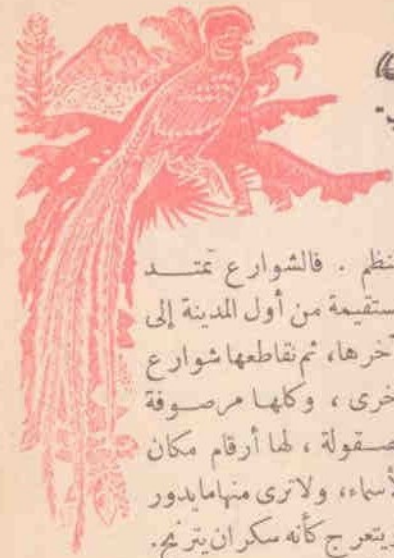 نظم . فالشوارع تمتــد
ستقيمة من أول المدينة إلى
آخرها، ثم تقاطعها شوارع
خرى ، وكلها مرصــوفة
صــقولة ، لها أرقام مكان
لأسماء، ولا ترى منها ما يدور
يتعرج كأنه سكران يترنح.